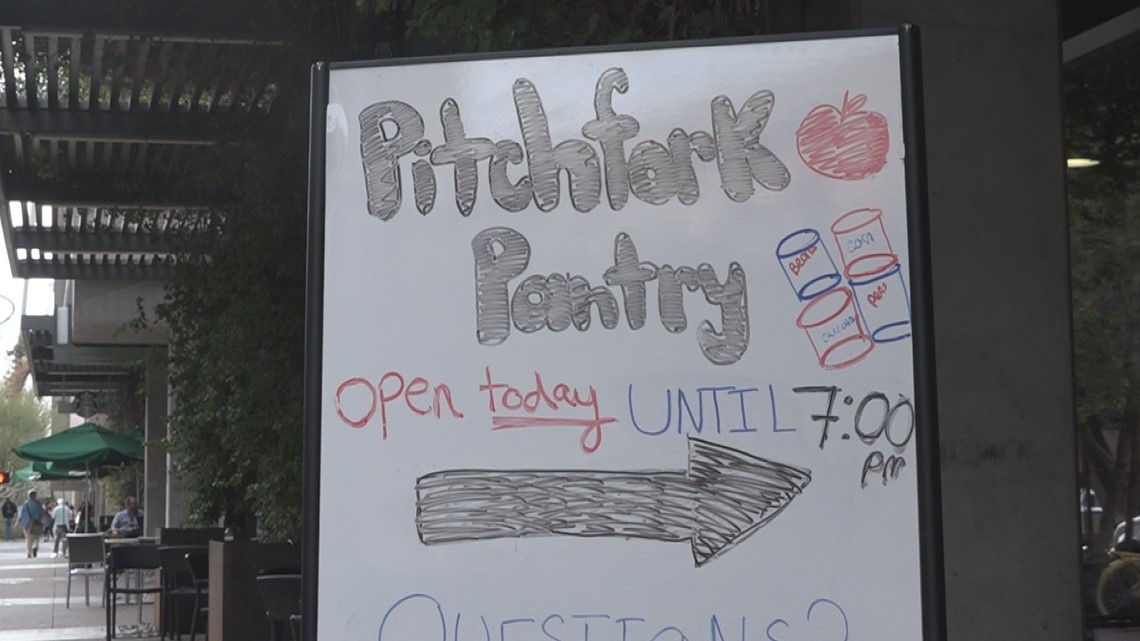 Pitchfork
Pantry
Beans
Corn
Peas
Carrots
Open today UNTIL 7:00
PM
QUESTIONS?